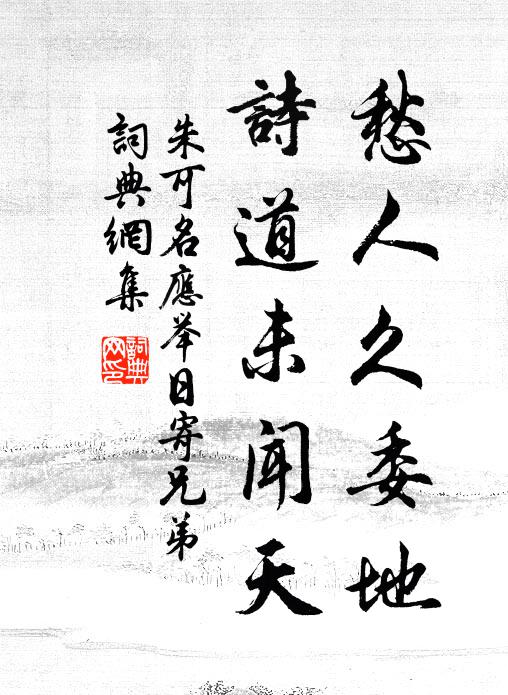 愁人久委地
詩道未聞天
朱可名應举日寄兄弟
詞典網集
詞典网印